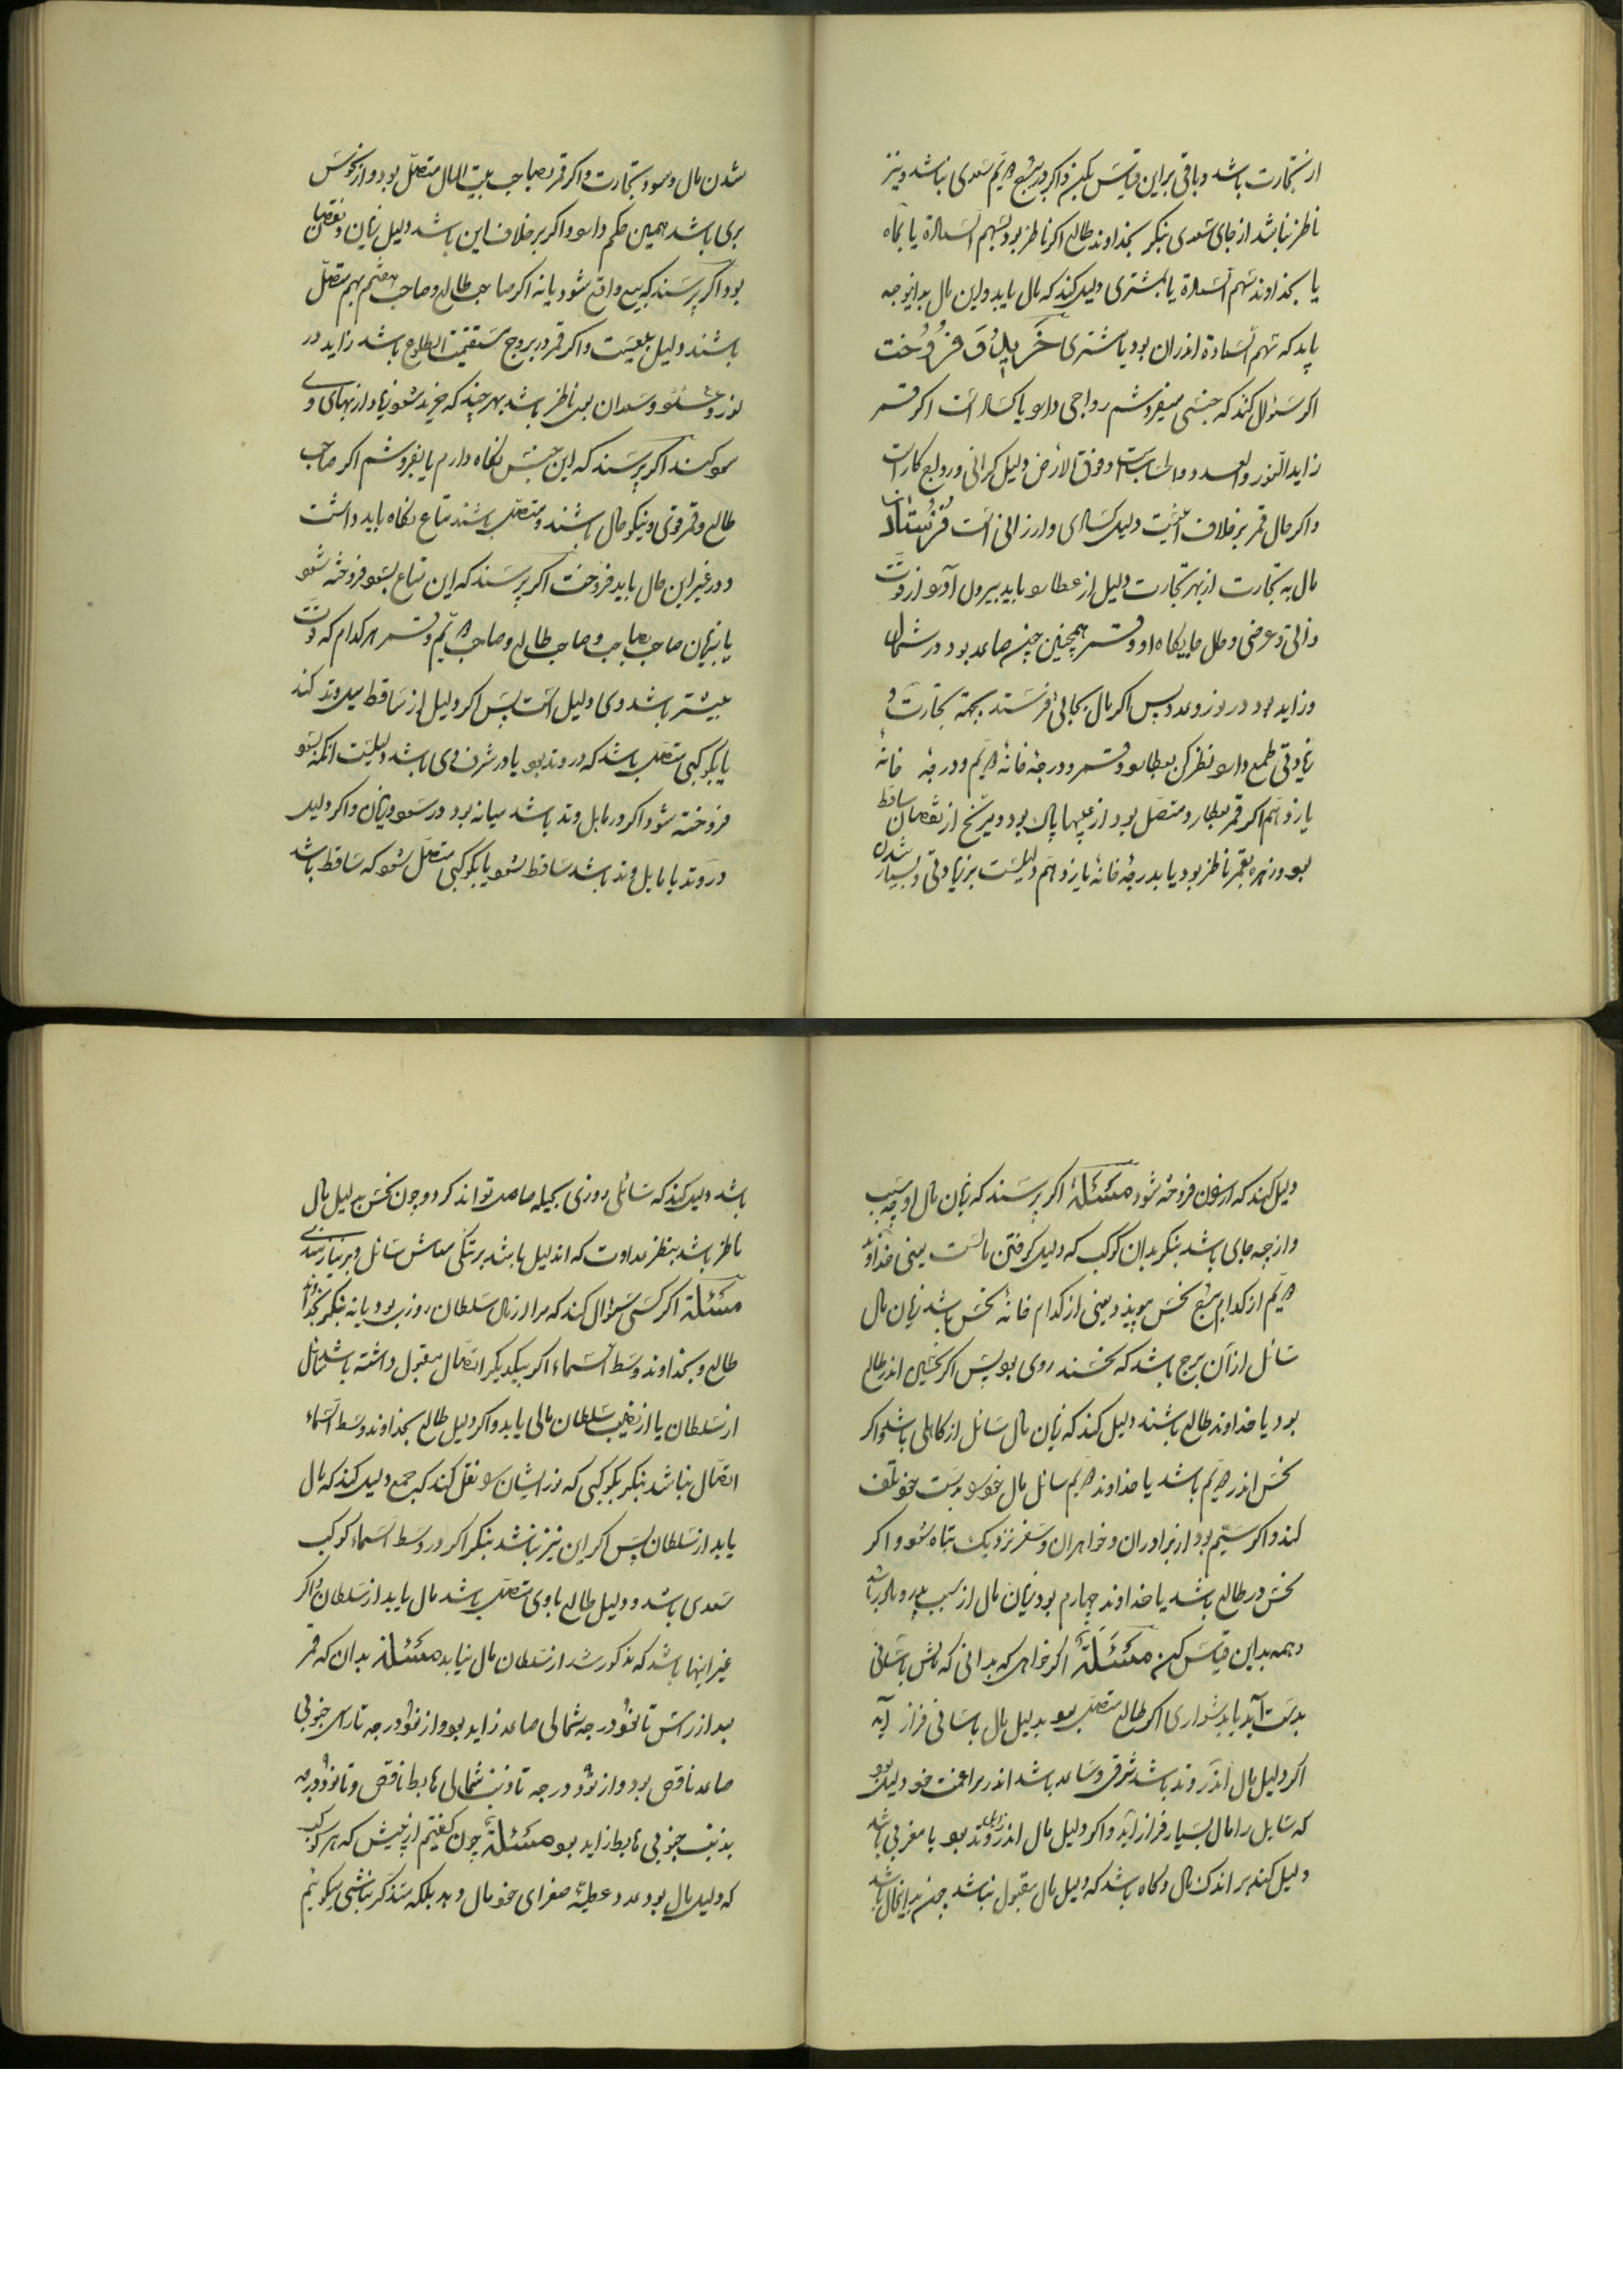 از تجارت باشد و باقی براین قیاس بکن و اگر در برج دویّم سعدی نباشد و نیز
ناظر نباشد از جای سعدی بنگر بخداوند طالع اگر ناظر بود بسهم السّعادة یا بماه
یا بخداوند سهم السّعادة یا بمشتری دلیل کند که مال یابد و این مال بدانوجه
یابد که سهم السّعادة اندران بود یا مشتری خرید و فروخت
اگر سئوال کند که جنسی میفروشم رواجی دارد یا کساد است اگر قمر
زاید النّور و العدد و الحساب است و فوق الارض دلیل گرانی و روایج کار است
و اگر حال قمر برخلاف اینست دلیل کسادی و ارزانی است فرستادن
مال به تجارت از بهر تجارت دلیل از عطارد باید بیرون آورد از قوّت
ذاتی و عرضی و حال جایگاه او و قمر همچنین چنین صاعد بود در شمال
و زاید بود در نور و عدد پس اگر مال بجائی فرستد بجهة تجارت و
زیادتی طمع دارد نظر کن بعطارد و قمر و درجهٔ خانهٔ دویّم و درجهٔ خانهٔ
یازدهم اگر قمر بعطارد متصل بود از عیبها پاک بود و مریخ از ایشان ساقط
بود و زهره بقمر ناظر بود یا بدرجهٔ خانهٔ یازدهم دلیلست بر زیادتی و بسیار شدن
شدن مال و سود تجارت و اگر قمر بصاحب بیت المال متصل بود و از نحوس
بری باشد همین حکم دارد و اگر برخلاف این باشد دلیل زیان و نقصان
بود اگر پرسند که بیع واقع شود یا نه اگر صاحب طالع و صاحب هفتم بهم متصل
باشند دلیل بیعست و اگر قمر در بروج مستقیمة الطلوع باشد زاید در
نور و عدد و سعدان بوی ناظر باشد بهر چند که خرید شود زیاد از بهای وی
سود کند اگر پرسند که این جنس نگاه دارم یا بفروشم اگر صاحب
طالع و قمر قوی و نیکو حال باشند و متصل باشند متاع نگاه باید داشت
و در غیر این حال باید فروخت اگر پرسند که این متاع بسود فروخته شود
یا بزیان صاحب صاحب و صاحب طالع و صاحب دویّم و قمر هر کدام که قوّت
بیشتر باشد وی دلیل است پس اگر دلیل از ساقط میل وتد کند
یا بکوکبی متصل باشد که در وتد بود یا در شرف وی باشد دلیلست آنکه بسود
فروخته شود اگر در مایل وتد باشد میانه بود در سود و زیان و اگر دلیل
در وتد یا مایل وتد باشد ساقط شود یا بکوکبی متصل شود که ساقط باشد
دلیل کند که فروخته شود مسئلهٔ اگر پرسند که زیان مال او چه سبب
و از چه جای باشد بنگر بدان کوکب که دلیل گرفتن مالست یعنی خداوند
دویّم از کدام برج نحس بپیوندد یعنی از کدام خانهٔ نحس باشد زیان مال
سائل از آن برج باشد که نحسند روی بود پس اگر نحسین اندر طالع
بود یا خداوند طالع باشند دلیل کند که زیان مال سائل از کاهلی باشد و اگر
نحس اندر دویّم باشد یا خداوند دویّم سائل مال خود بدست خود تلف
کند و اگر سیّم بود از برادران و خواهران و سفر نزدیک تباه شود و اگر
نحس در طالع باشد یا خداوند چهارم بود زیان مال از سبب پدر و مادر باشد
و همه بدین قیاس کن مسئلة اگر خواهی که بدانی که مالش بآسانی
بدست آید یا بدشواری اگر طالع متصل بود بدلیل مال بآسانی فراز آید
اگر دلیل مال اندر وتد باشد شرقی و صاعد باشد اندر مراغمت خود دلیل بود
که سایل را مال بسیار فراز آید و اگر دلیل مال اندر زایل وتد بود یا مغربی باشد
دلیل کند بر اندک مال و گاه باشد که دلیل مال مقبول نباشد چون بداینحال باشد
باشد دلیل کند که سائل روزی بحیله حاصل تواند کرد و چون نحس بدلیل مال
ناظر باشد بنظر عداوت که اندلیل باشد بر تنگی معاش سائل و بر نیازمندی
مسئلة اگر کسی سؤال کند که مرا از مال سلطان روزی بود یا نه بنگر بخداوند
طالع و بخداوند وسط السّماء اگر بیکدیگر اتصال مقبول داشته باشد سائل
از سلطان یا از نصیب سلطان مالی یابد و اگر دلیل طالع بخداوند وسط السّماء
اتصال نباشد بنگر بکوکبی که نور ایشان را نقل کند یا جمع دلیل کند که مال
یابد از سلطان پس اگر این نیز نباشد بنگر اگر در وسط السّماء کوکب
سعدی باشد و دلیل طالع باوی متصل باشد مال یابد از سلطان و اگر
غیر اینها باشد که مذکور شد از سلطان مال نیابد مسئلة بدان که قمر
بعد از راس تا نود درجه شمالی صاعد زاید بود و از نود درجه تا راس جنوبی
صاعد ناقص بود و از نود درجه تا ذنب شمالی هابط ناقص و تا نود درجه
بذنب جنوبی هابط زاید بود مسئلة چون گفتیم از پیش که هر کوکب
که دلیل مال بود عدد عطیّهٔ صغرای خود مال دهد بلکه متذکر نباشی بگوئیم